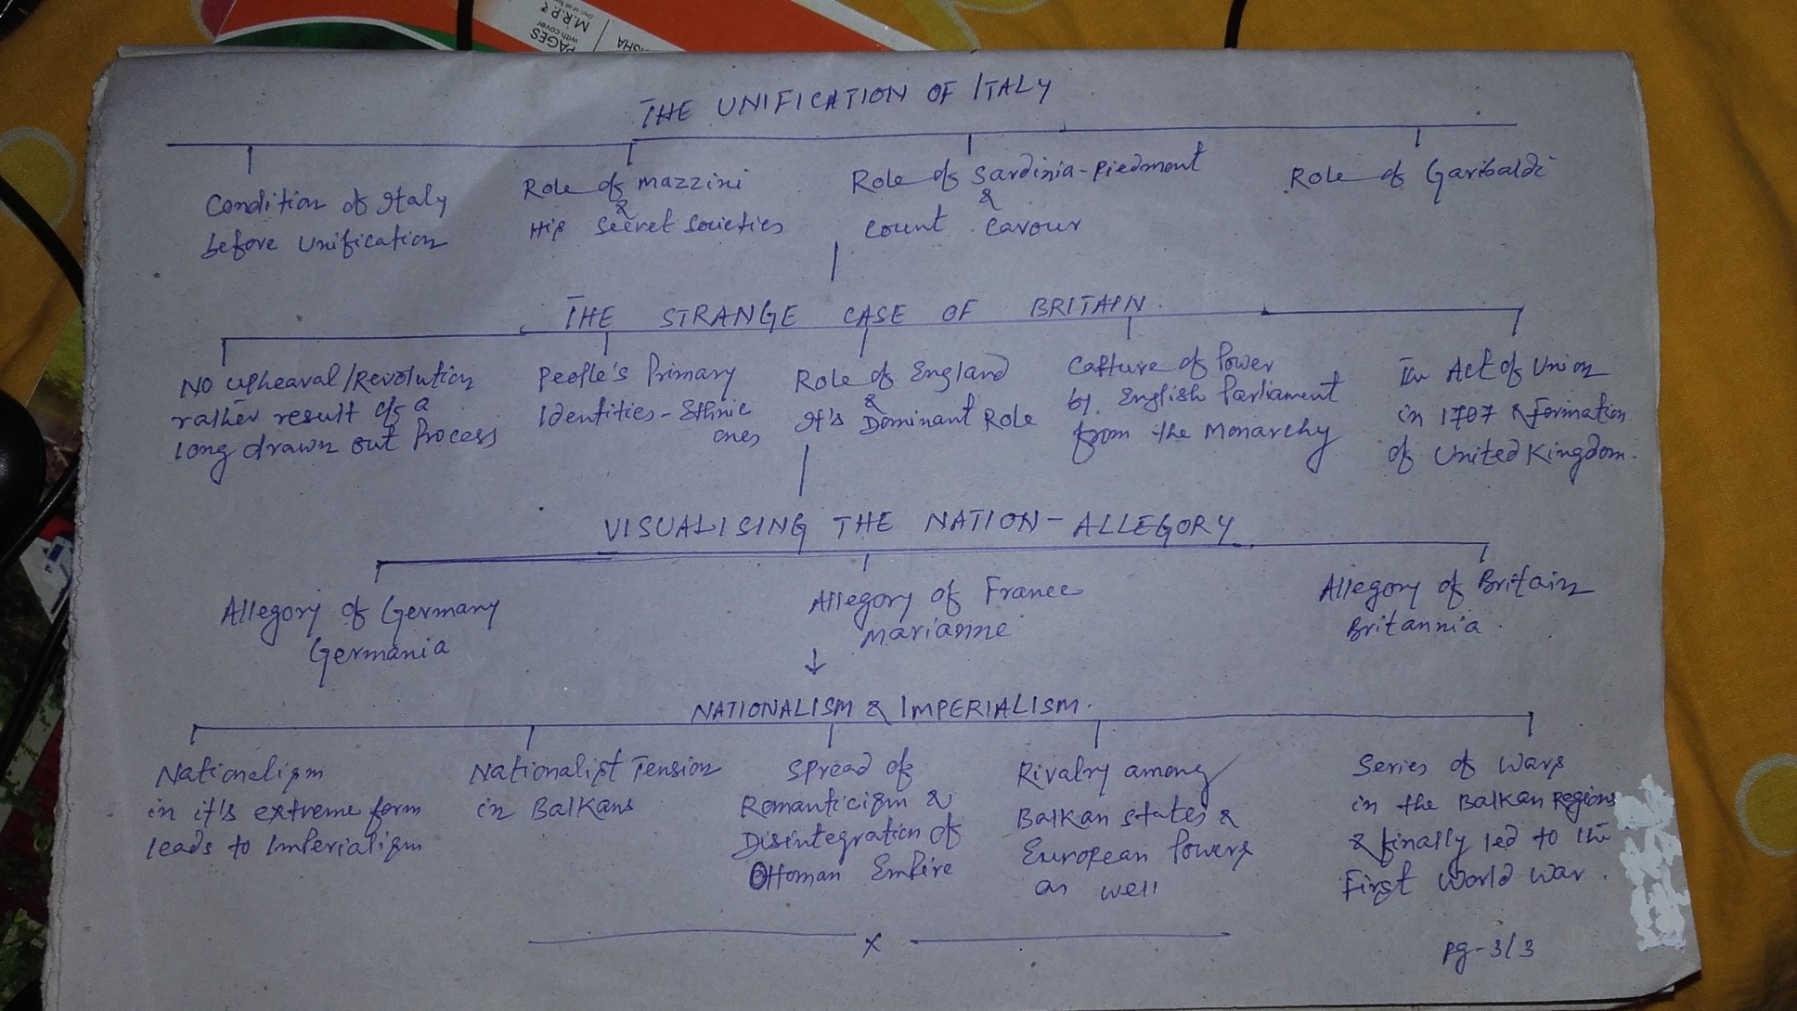 PAGES
with cover
M.R.P.₹
THE UNIFICATION OF ITALY
Condition of Italy
before unification
Role of mazzini
&
His secret societies
Role of Sardinia-Piedmont
&
count cavour
Role of Garibaldi
THE STRANGE CASE OF BRITAIN.
NO upheaval/Revolution
rather result of a
long drawn out Process
People's Primary
Identities - Ethnic
ones
Role of England
&
It's Dominant Role
Capture of Power
by English Parliament
from the Monarchy
The Act of Union
in 1707 & formation
of United Kingdom.
VISUALISING THE NATION - ALLEGORY
Allegory of Germany
Germania
Allegory of France
marianne
Allegory of Britain
Britannia.
NATIONALISM & IMPERIALISM.
Nationalism
in it's extreme form
leads to Imperialism
Nationalist Tension
in Balkans
Spread of
Romanticism &
Disintegration of
Ottoman Empire
Rivalry among
Balkan states &
European Powers
as well
Series of wars
in the Balkan Regions
& finally led to the
First World War.
x
pg-3/3